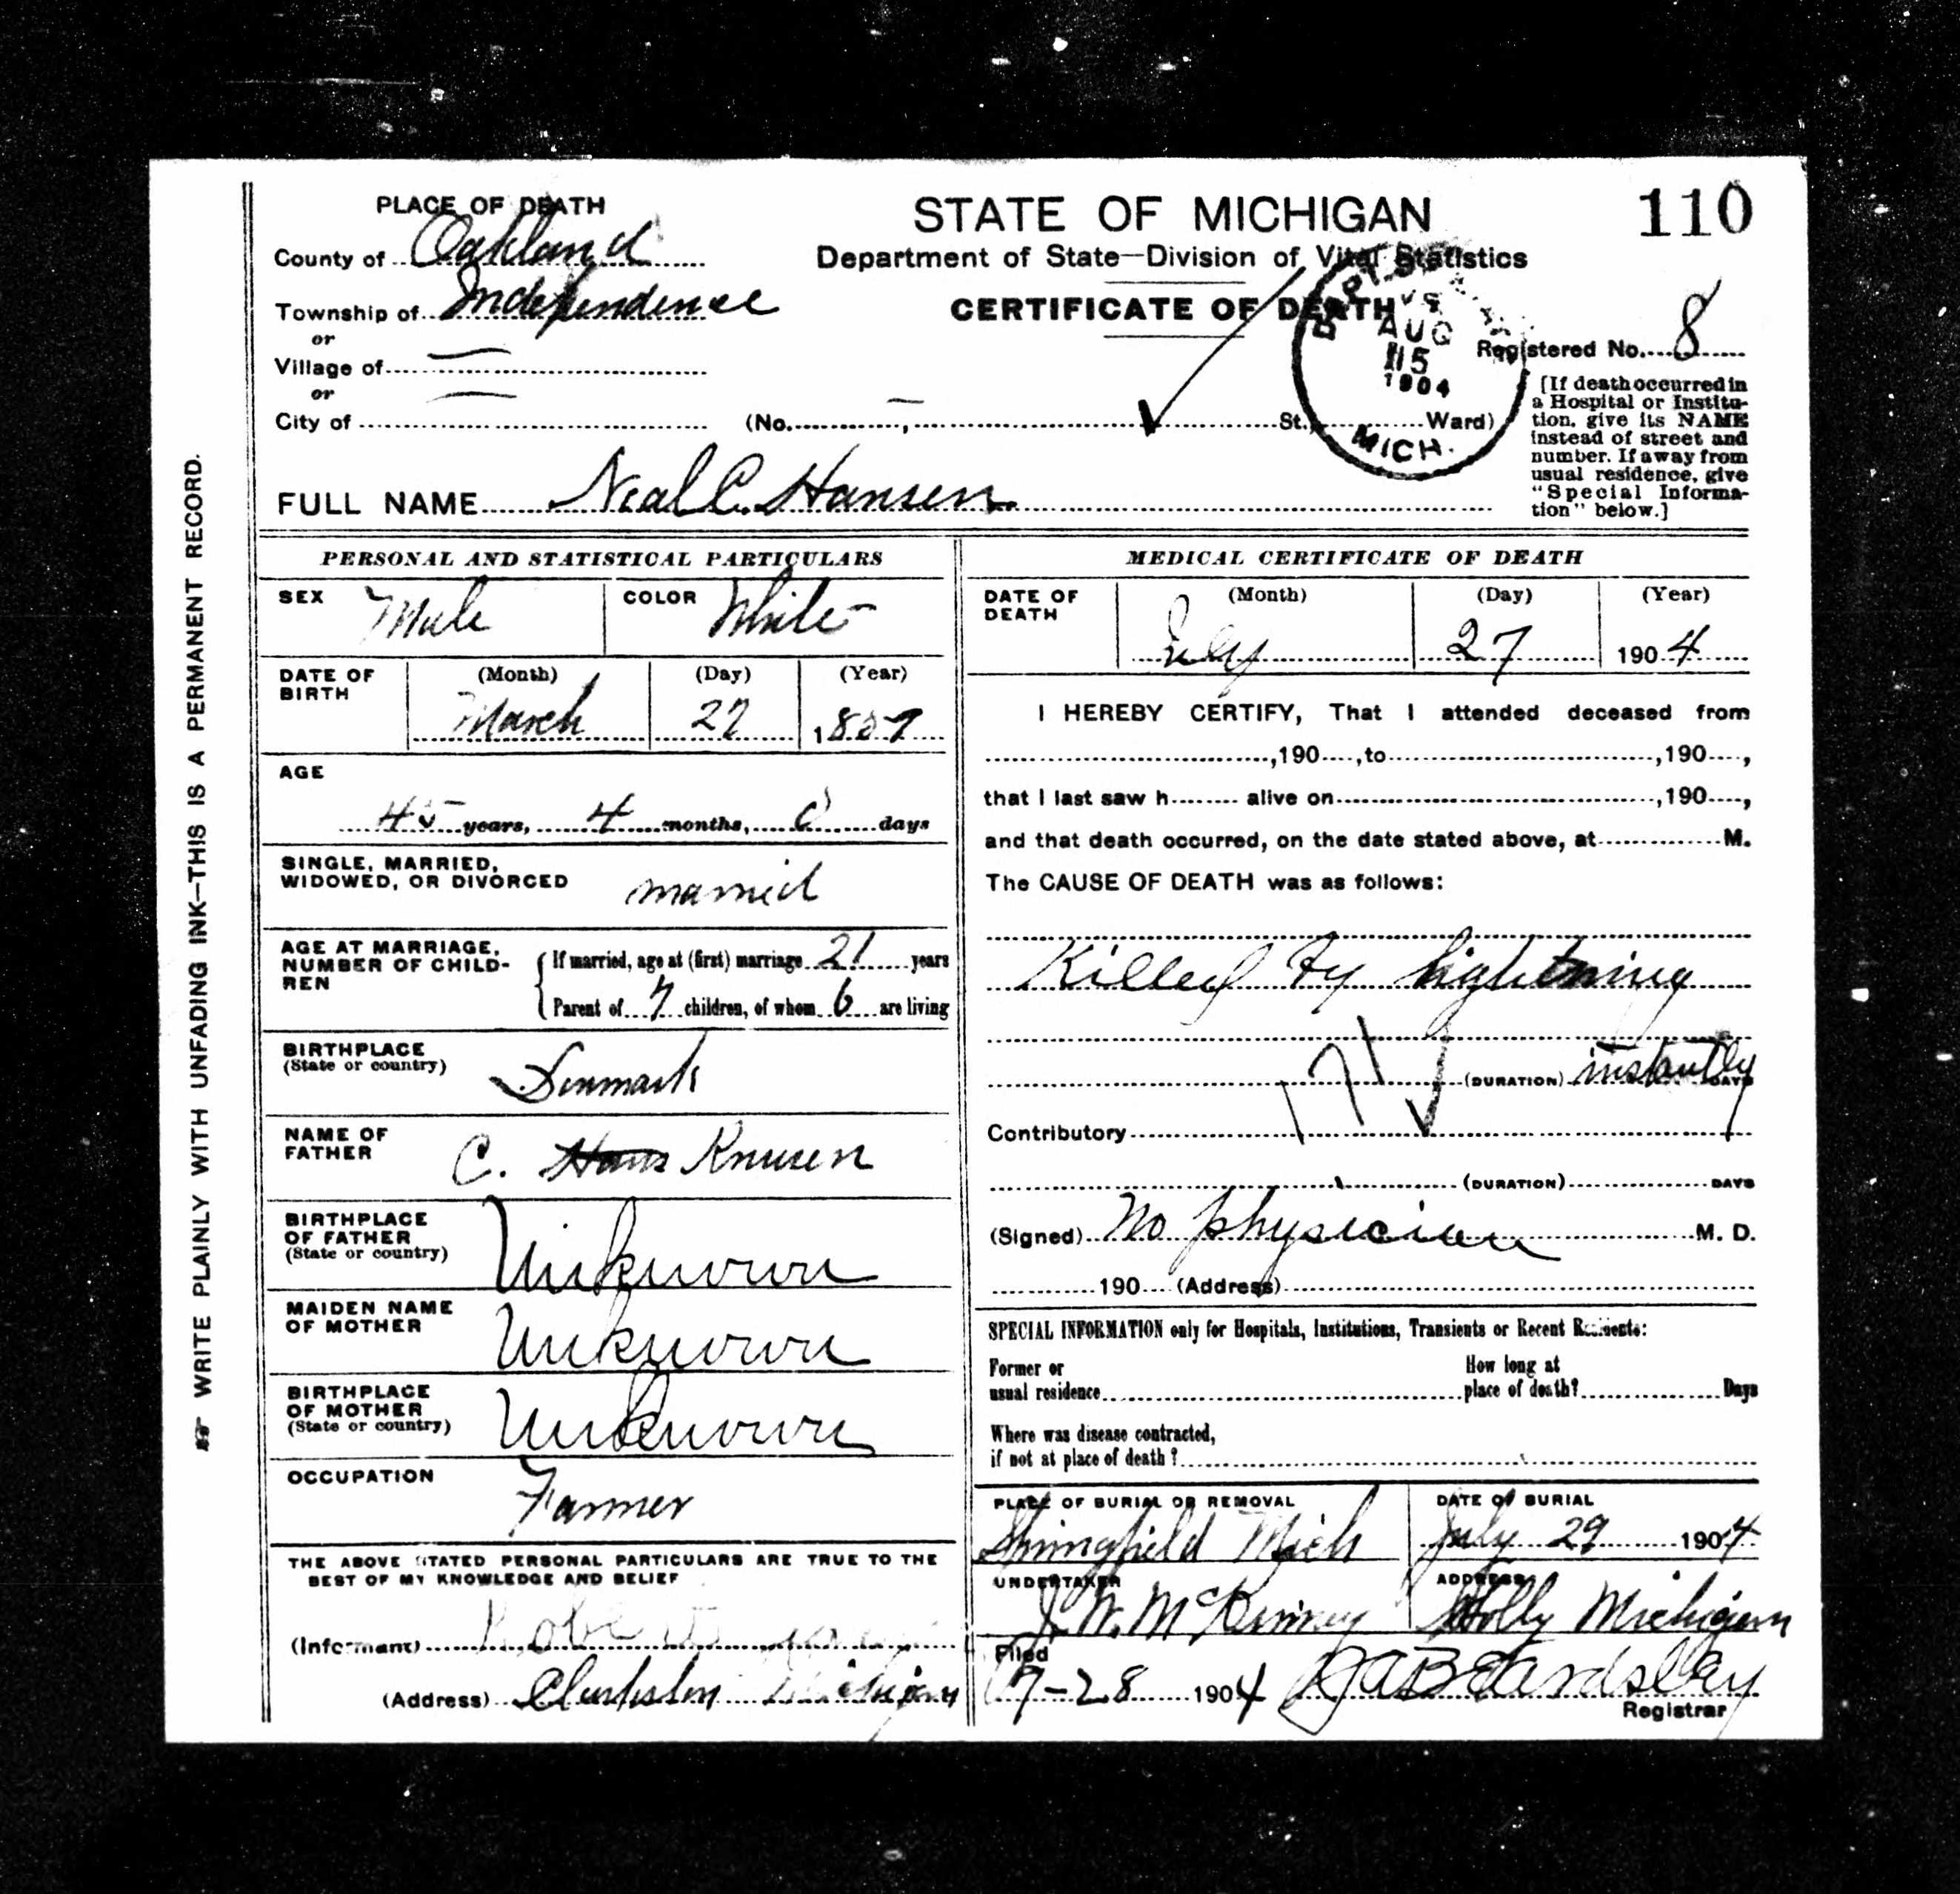 110
PLACE OF DEATH
STATE OF MICHIGAN
Department of State—Division of Vital Statistics
CERTIFICATE OF DEATH
County of Oakland
Township of Independence
or
Village of —
or
City of —
(No. — , St., Ward)
AUG
15
1904
MICH.
Registered No. 8
[If death occurred in
a Hospital or Institu-
tion, give its NAME
instead of street and
number. If away from
usual residence, give
"Special Informa-
tion" below.]
FULL NAME Neal C. Hansen
WRITE PLAINLY WITH UNFADING INK—THIS IS A PERMANENT RECORD.
PERSONAL AND STATISTICAL PARTICULARS
SEX Male COLOR White
DATE OF BIRTH (Month) March (Day) 27 (Year)
AGE
45 years, 4 months, 0 days
SINGLE, MARRIED,
WIDOWED, OR DIVORCED married
AGE AT MARRIAGE,
NUMBER OF CHILD-
REN
If married, age at (first) marriage 21 years
Parent of 7 children, of whom 6 are living
BIRTHPLACE
(State or country) Denmark
NAME OF
FATHER C. Hans Knusen
BIRTHPLACE
OF FATHER
(State or country) Unknown
MAIDEN NAME
OF MOTHER Unknown
BIRTHPLACE
OF MOTHER
(State or country) Unknown
OCCUPATION Farmer
THE ABOVE STATED PERSONAL PARTICULARS ARE TRUE TO THE
BEST OF MY KNOWLEDGE AND BELIEF
(Informant) Robert
(Address) Clarkston Michigan
MEDICAL CERTIFICATE OF DEATH
DATE OF
DEATH (Month) July (Day) 27 (Year) 1904
I HEREBY CERTIFY, That I attended deceased from
,190 , to ,190 ,
that I last saw h alive on ,190 ,
and that death occurred, on the date stated above, at M.
The CAUSE OF DEATH was as follows:
Killed by lightning
171
(DURATION) instantly DAYS
Contributory
(DURATION) DAYS
(Signed) No physician M. D.
190 (Address)
SPECIAL INFORMATION only for Hospitals, Institutions, Transients or Recent Residents:
Former or
usual residence
How long at
place of death? Days
Where was disease contracted,
if not at place of death?
PLACE OF BURIAL OR REMOVAL
Springfield Mich
DATE OF BURIAL
July 29 1904
UNDERTAKER
J. W. McKinney
ADDRESS
Holly Michigan
Filed
7-28 1904 Beardsley
Registrar